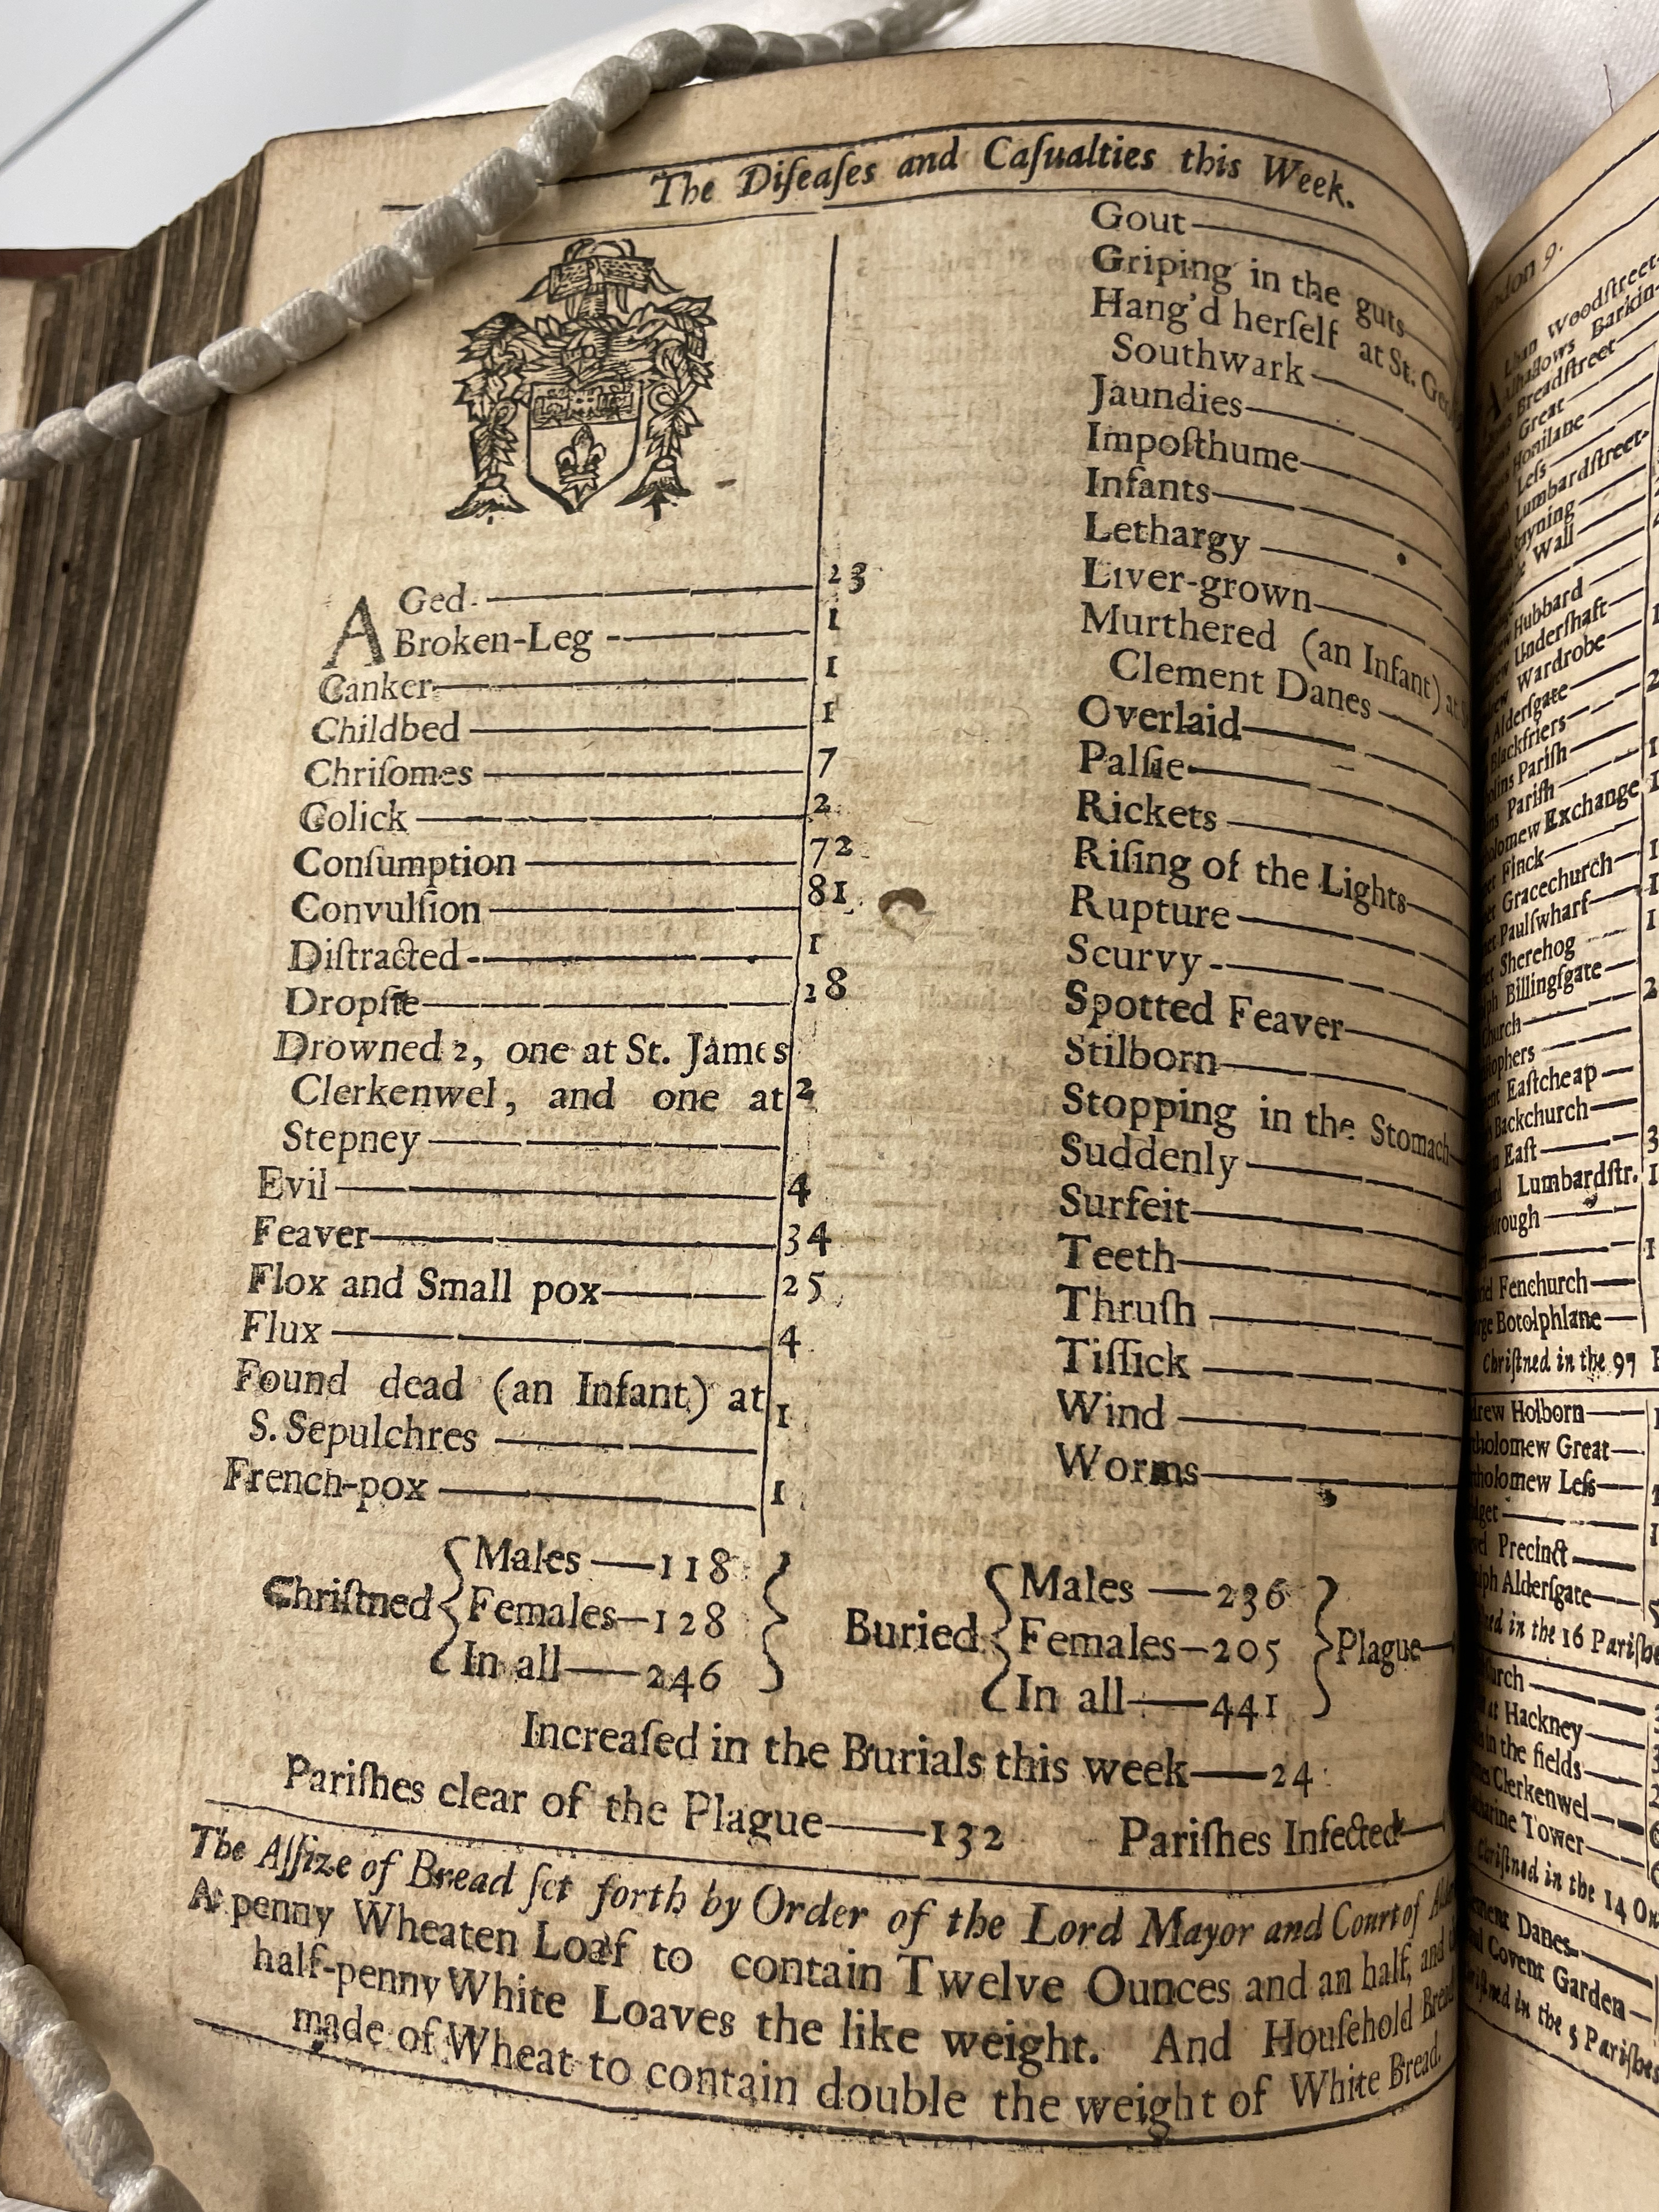 The Diſeaſes and Caſualties this Week.
AGed 23
Broken-Leg 1
Canker 1
Childbed 1
Chriſomes 7
Colick 2
Conſumption 72
Convulſion 81
Diſtracted 1
Dropſie 28
Drowned 2, one at St. James
Clerkenwel, and one at 2
Stepney
Evil 4
Feaver 34
Flox and Small pox 25
Flux 4
Found dead (an Infant) at 1
S. Sepulchres
French-pox 1
Gout
Griping in the guts
Hang'd herſelf at St.
Southwark
Jaundies
Impoſthume
Infants
Lethargy
Liver-grown
Murthered (an Infant) at
Clement Danes
Overlaid
Palſie
Rickets
Riſing of the Lights
Rupture
Scurvy
Spotted Feaver
Stilborn
Stopping in the Stomach
Suddenly
Surfeit
Teeth
Thruſh
Tiſſick
Wind
Worms
Chriſtned { Males 118
Females 128
In all 246 }
Buried { Males 236
Females 205
In all 441 } Plague
Increaſed in the Burials this week 24
Pariſhes clear of the Plague 132 Pariſhes Infected
The Aſſize of Bread ſet forth by Order of the Lord Mayor and Court of
A penny Wheaten Loaf to contain Twelve Ounces and an half, and
half-penny White Loaves the like weight. And Houſehold
made of Wheat to contain double the weight of White Bread.
9.
Woodſtreet
Barkin
Breadſtreet
Great
Honilane
Leſs
Lumbardſtreet
Stayning
Wall
Hubbard
Underſhaft
Wardrobe
Alderſgate
Blackfriers
Pariſh
Pariſh
Exchange
Finck
Gracechurch
Paulſwharf
Sherehog
Billingſgate
Eaſtcheap
Backchurch
Eaſt 3
Lumbardſtr. 1
Fenchurch
Botolphlane
Chriſtned in the 97
Holborn
Great
Leſs
Precinct
Alderſgate
in the 16 Pariſhe
at Hackney
in the fields
Clerkenwel
Tower
in the 14
Danes
Covent Garden
in the 5 Pariſhes